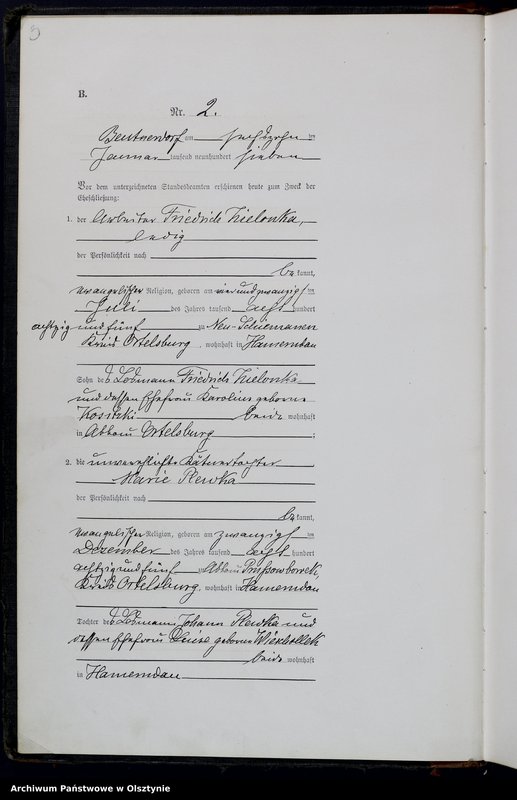 B.
Nr. 2.
Beutnerdorf am sechszehn ten
Januar tausend neunhundert sieben
Vor dem unterzeichneten Standesbeamten erschienen heute zum Zweck der
Eheschließung:
1. der Arbeiter Friedrich Zielonka,
ledig
der Persönlichkeit nach
be kannt,
evangelischer Religion, geboren am vierundzwanzigsten
Juli des Jahres tausend acht hundert
achtzig und fünf zu Neu-Schiemanen
Kreis Ortelsburg, wohnhaft in Hamerudau
Sohn des Losmann Friedrich Zielonka
und dessen Ehefrau Karoline geborene
beide wohnhaft
in Abbau Ortelsburg ;
2. die unverehelichte Kätnertochter
Marie Plewka
der Persönlichkeit nach
be kannt,
evangelischer Religion, geboren am zwanzigsten
Dezember des Jahres tausend acht hundert
achtzigundfünf zu Abbau
Kreis Ortelsburg, wohnhaft in Hamerudau
Tochter des Losmann Johann Plewka und
dessen Ehefrau Luise geborene
beide wohnhaft
in Hamerudau
Archiwum Państwowe w Olsztynie